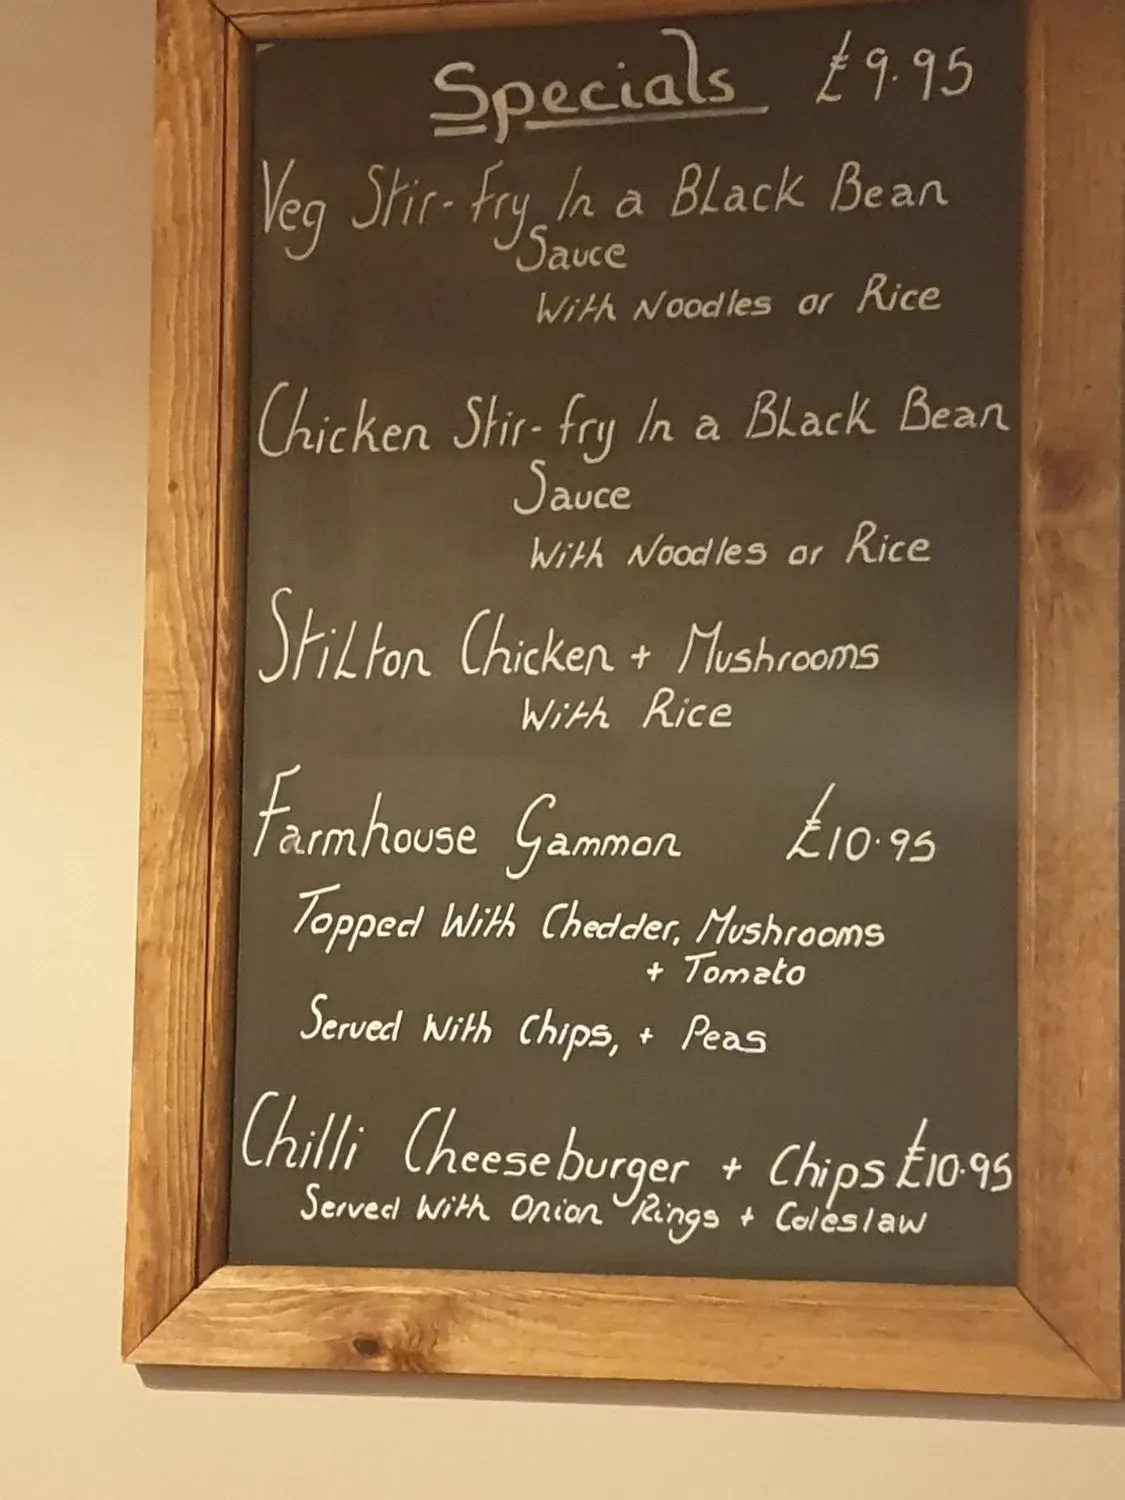 Specials £9.95
Veg Stir-Fry In a Black Bean
Sauce
With Noodles or Rice
Chicken Stir-fry In a Black Bean
Sauce
With Noodles or Rice
Stilton Chicken + Mushrooms
With Rice
Farmhouse Gammon £10.95
Topped With Chedder, Mushrooms
+ Tomato
Served With Chips, + Peas
Chilli Cheeseburger + Chips £10.95
Served With Onion Rings + Coleslaw